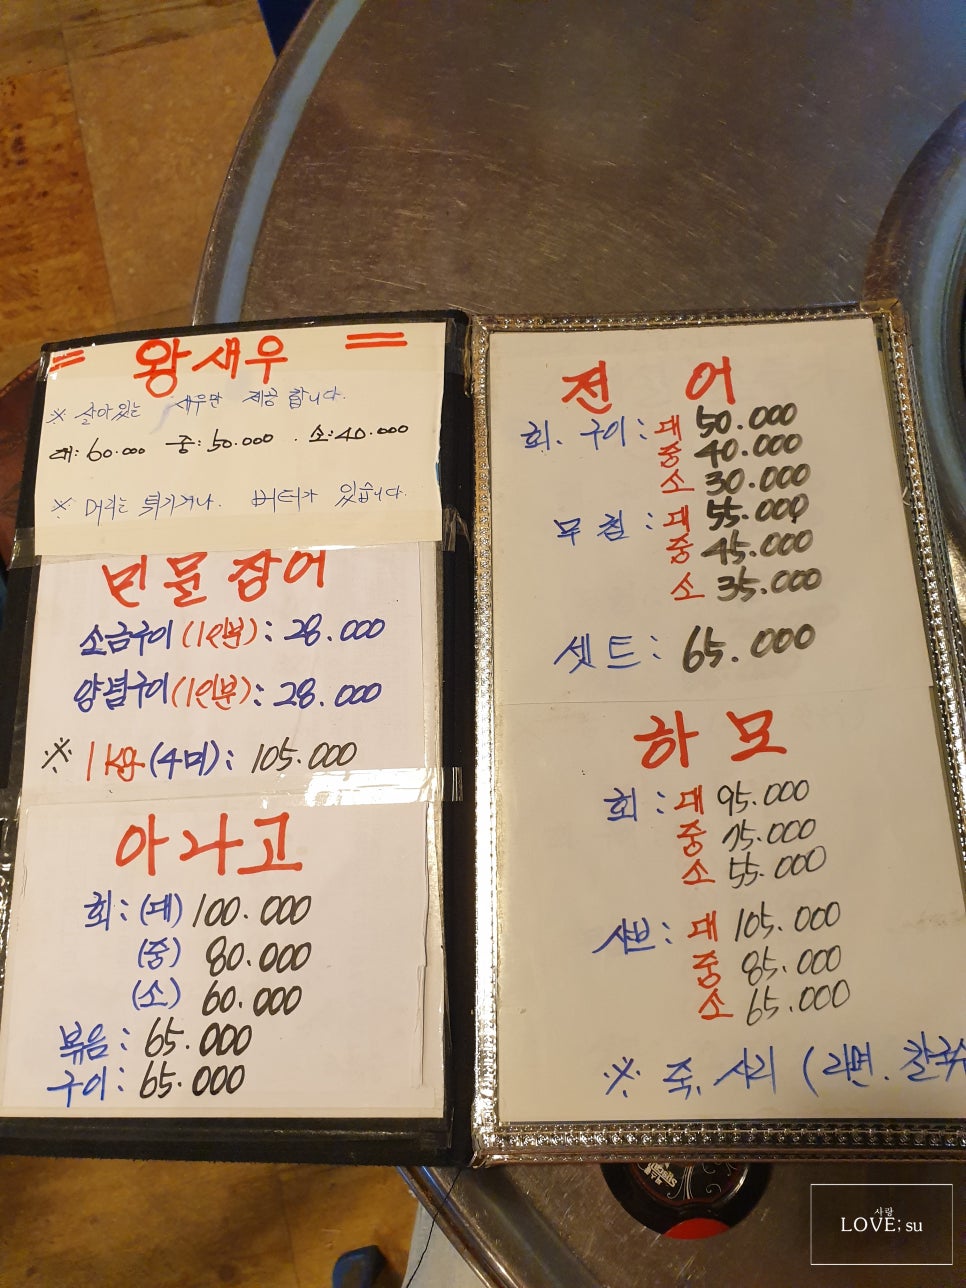 = 왕새우 =
※ 살아있는 새우만 제공합니다.
대: 60.000 중: 50.000 . 소: 40.000
※ 머리는 튀기거나. 버터가 있습니다.
민물장어
소금구이 (1인분): 28.000
양념구이 (1인분): 28.000
※ 1kg (4미): 105.000
아나고
회: (대) 100.000
(중) 80.000
(소) 60.000
볶음: 65.000
구이: 65.000
전 어
회. 구이: 대 50.000
중 40.000
소 30.000
무침: 대 55.000
중 45.000
소 35.000
셋트: 65.000
하모
회: 대 95.000
중 75.000
소 55.000
샤브: 대 105.000
중 85.000
소 65.000
※ 죽, 사리 (라면. 칼국수
사랑
LOVE; su